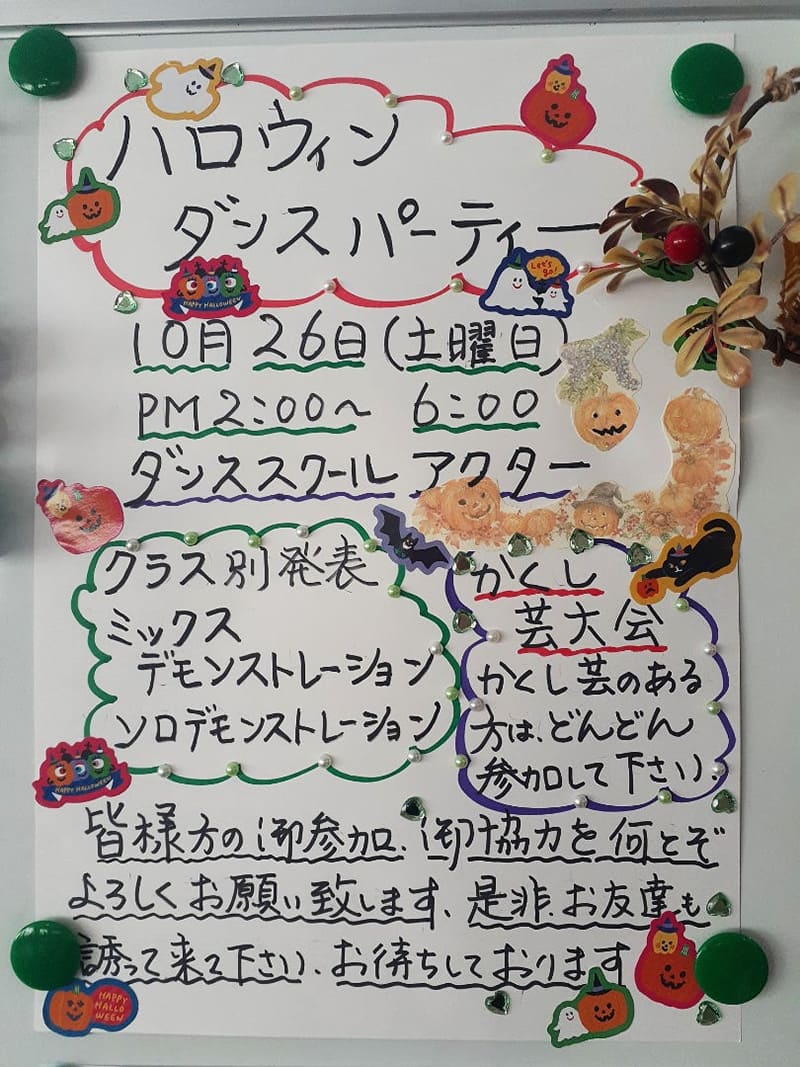 ハロウィン
ダンスパーティー
Let's go!
HAPPY HALLOWEEN
10月26日(土曜日)
PM2:00〜 6:00
ダンススクールアクター
クラス別発表
ミックス
デモンストレーション
ソロデモンストレーション
かくし
芸大会
かくし芸のある
方は、どんどん
参加して下さい。
HAPPY HALLOWEEN
皆様方の御参加、御協力を何とぞ
よろしくお願い致します、是非、お友達も
誘って来て下さい、お待ちしております
HAPPY
HALLO
WEEN